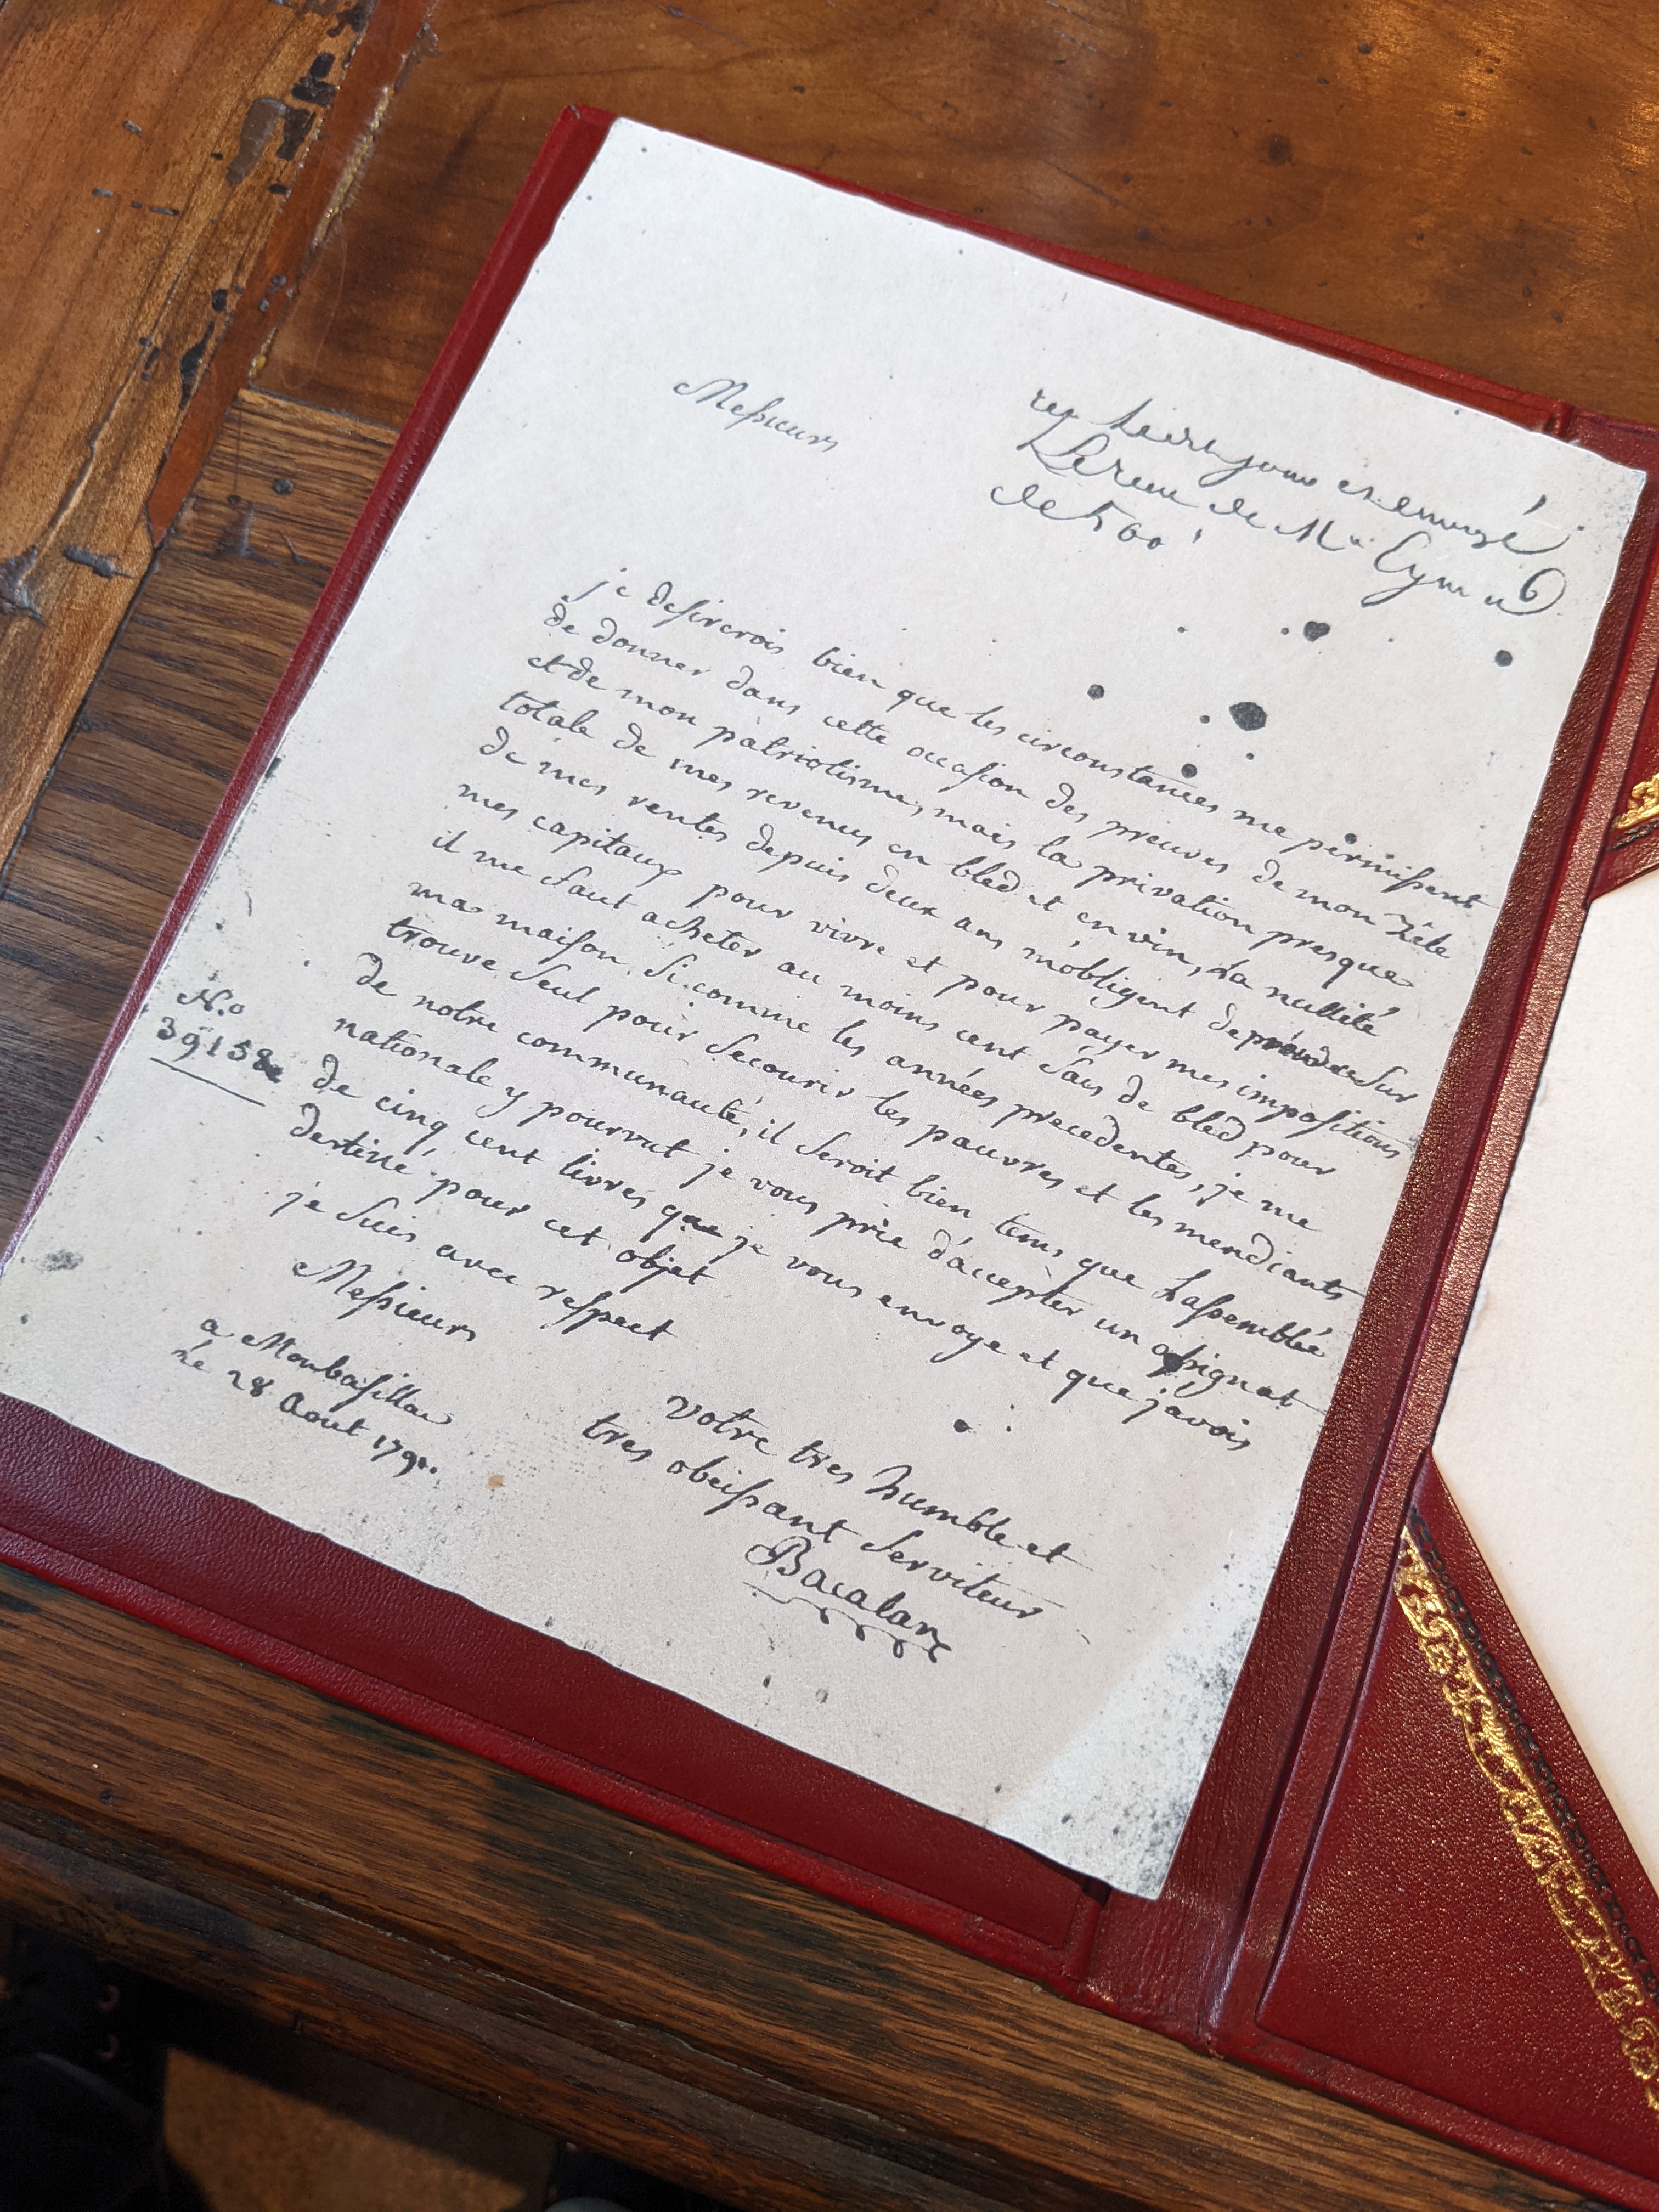 Messieurs
et envoyé
Le recu de Mr Eymeri
de 500 l
je desirerois bien que les circonstances me permissent
de donner dans cette occasion des preuves de mon zèle
et de mon patriotisme, mais la privation presque
totale de mes revenus en bled et en vin, La nullité
de mes rentes depuis deux ans m'obligent de prendre Sur
mes capitaux pour vivre et pour payer mes impositions
il me faut acheter au moins cent Sacs de bled pour
ma maison, Si comme les années precedentes, je me
trouve Seul pour Secourir les pauvres et les mendiants
de notre communauté, il Seroit bien tems que Lassemblée
nationale y pourvut je vous prie d'accepter un assignat
de cinq cent livres que je vous envoye et que j'avois
destiné pour cet objet
No
39158
je Suis avec respect
Messieurs
votre tres humble et
tres obeissant Serviteur
Bacalan
a Monbasillac
le 28 Aout 1791.